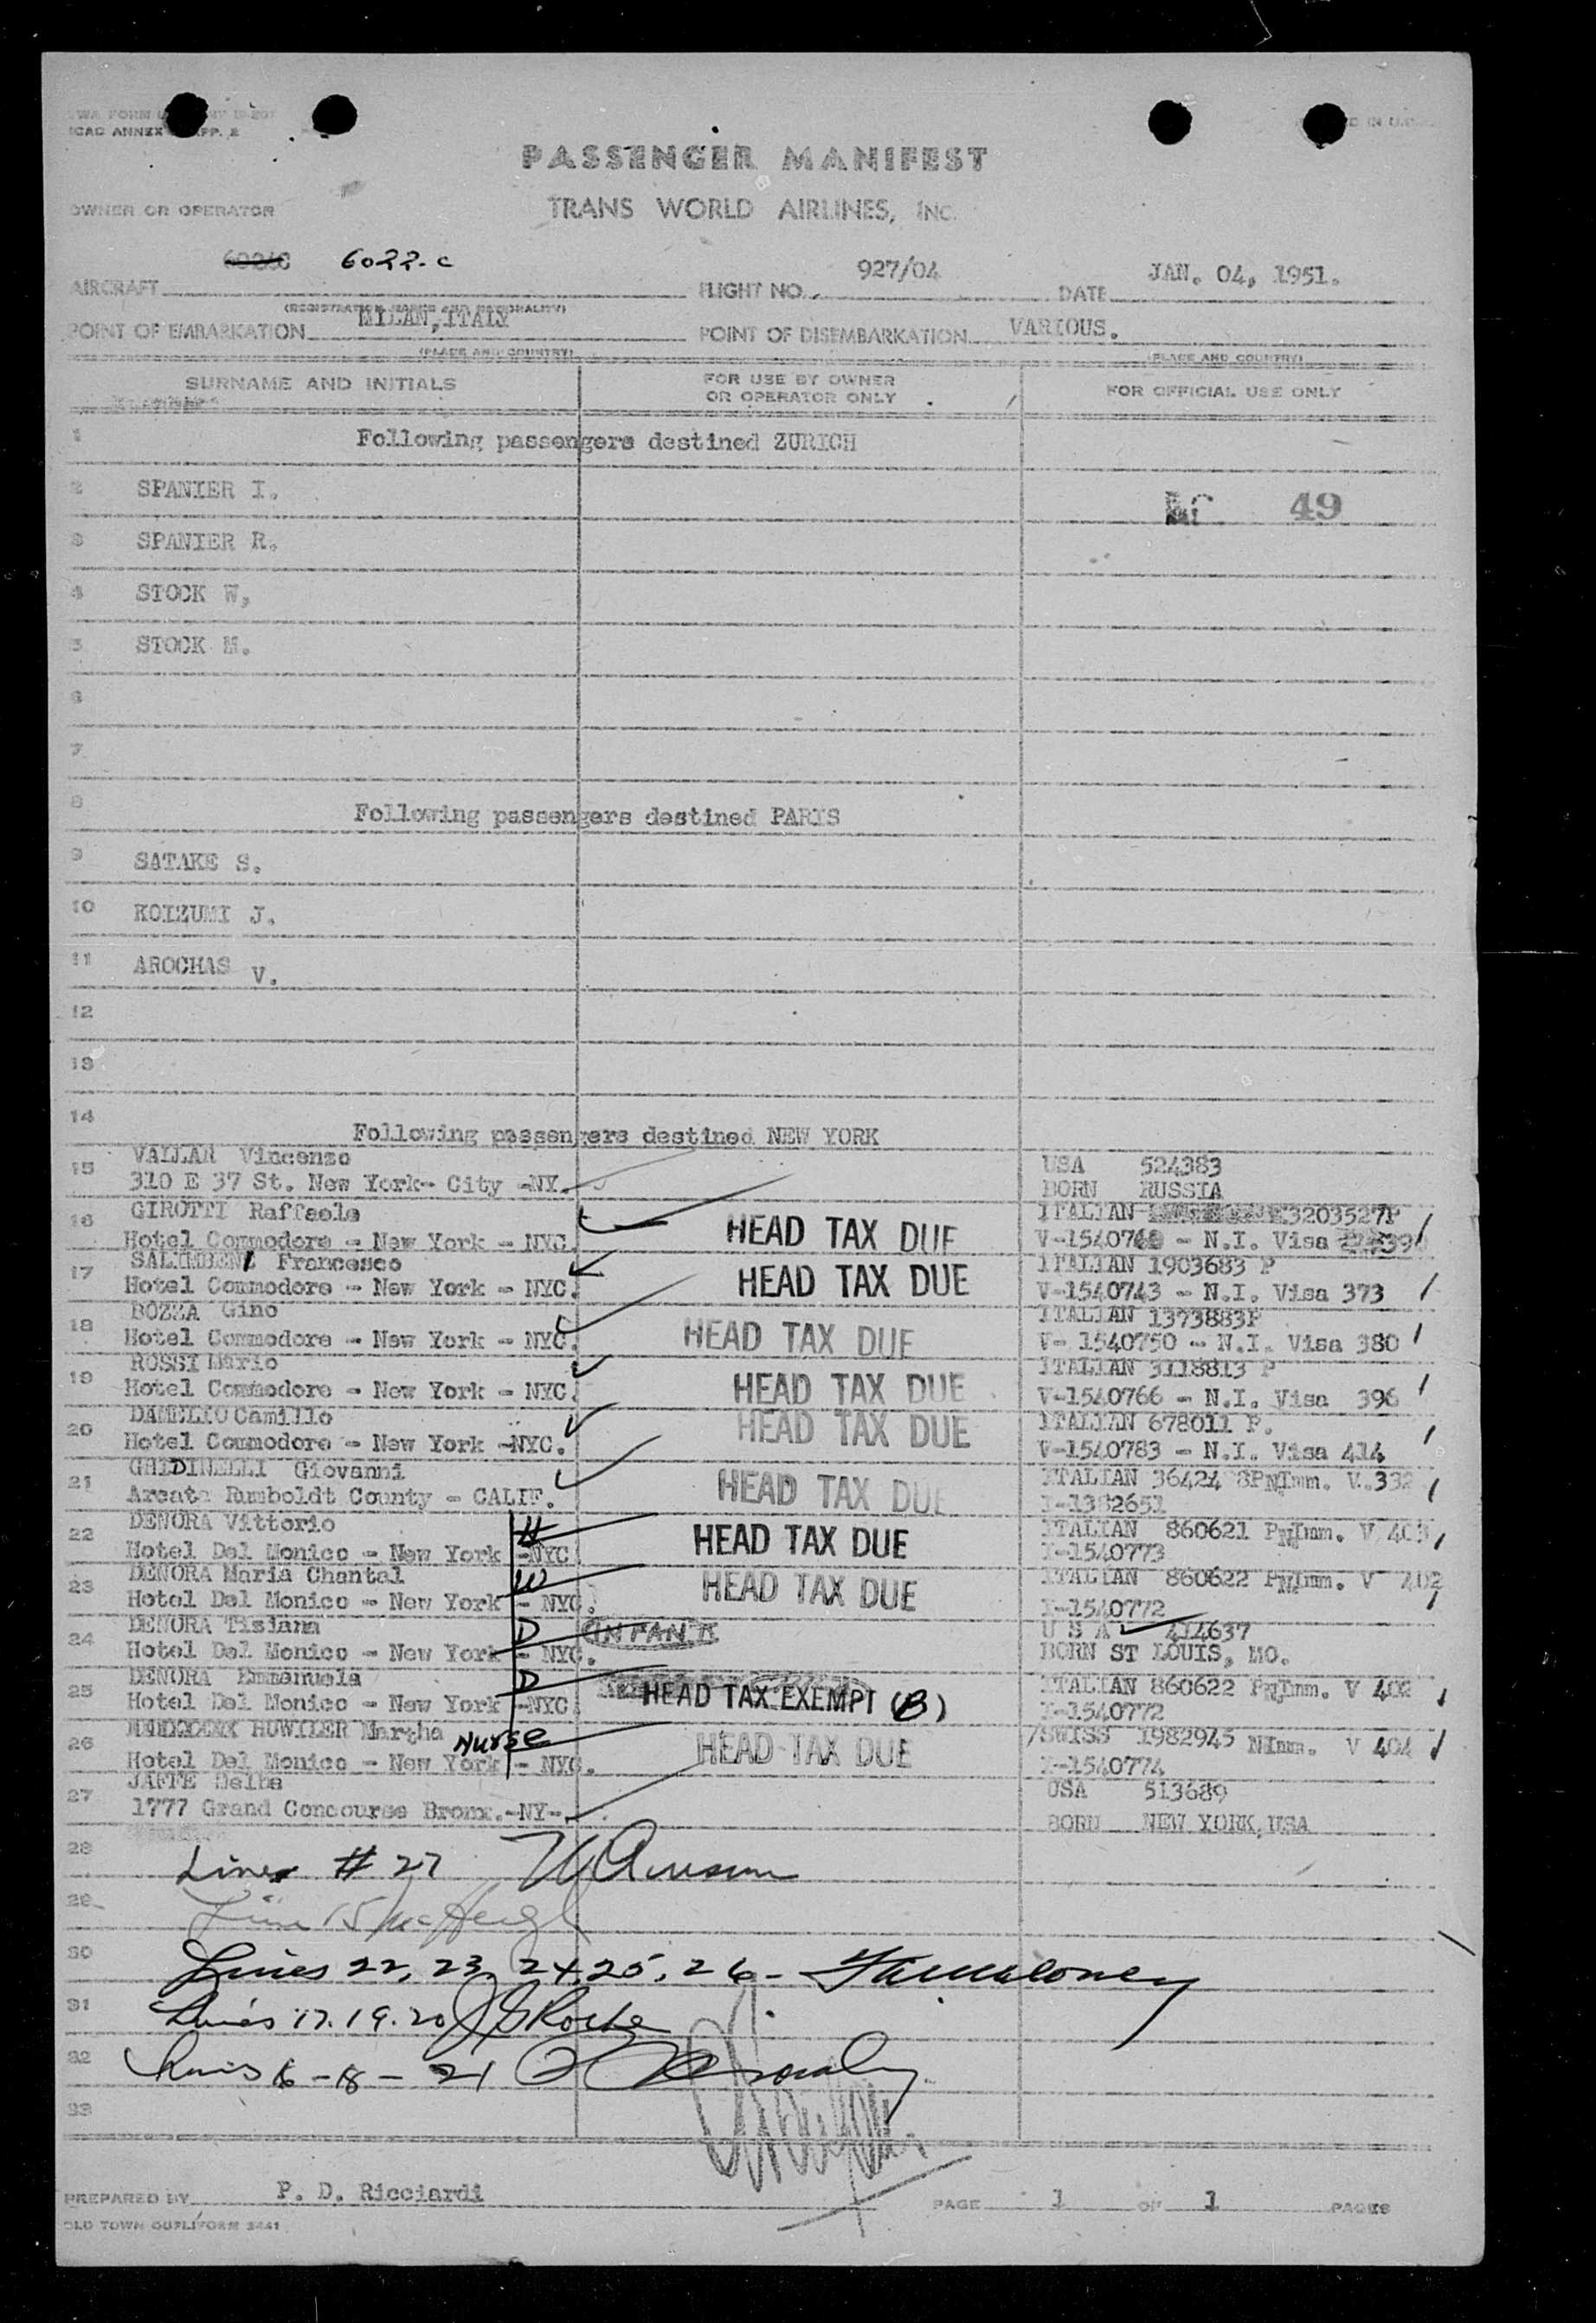 ICAO ANNEX APP. 2
PASSENGER MANIFEST
OWNER OR OPERATOR TRANS WORLD AIRLINES, INC.
6022-C
AIRCRAFT FLIGHT NO. 927/04 DATE JAN. 04, 1951.
POINT OF EMBARKATION MILAN, ITALY POINT OF DISEMBARKATION VARIOUS.
(PLACE AND COUNTRY) (PLACE AND COUNTRY)
SURNAME AND INITIALS FOR USE BY OWNER OR OPERATOR ONLY FOR OFFICIAL USE ONLY
1 Following passengers destined ZURICH
2 SPANIER I. 49
3 SPANIER R.
4 STOCK W,
5 STOCK M.
6
7
8 Following passengers destined PARIS
9 SATAKE S.
10 KOIZUMI J.
11 AROCHAS V.
12
13
14 Following passengers destined NEW YORK
15 VALLAR Vincenzo USA 524383
310 E 37 St. New York- City -NY. BORN RUSSIA
16 GIROTTI Raffaele HEAD TAX DUE ITALIAN 3203527P
Hotel Commodore - New York - NYC. - N.I. Visa
17 SALIMBENI Francesco HEAD TAX DUE ITALIAN 1903683 P
Hotel Commodore - New York - NYC. V-1540743 - N.I. Visa 373
18 BOZZA Gino HEAD TAX DUE ITALIAN 1373883P
Hotel Commodore - New York - NYC. V- 1540750 - N.I. Visa 380
19 ROSSI Mario HEAD TAX DUE ITALIAN 3118813 P
Hotel Commodore - New York - NYC. V-1540766 - N.I. Visa 396
20 DAMELIO Camillo HEAD TAX DUE ITALIAN 678011 P.
Hotel Commodore - New York -NYC. V-1540783 - N.I. Visa 414
21 GHIDINELLI Giovanni HEAD TAX DUE ITALIAN 36424 8P NImm. V.332
Arcata Rumboldt County - CALIF. I-1382651
22 DENORA Vittorio H HEAD TAX DUE ITALIAN 860621 P NImm. V 403
Hotel Del Monico - New York -NYC I-1540773
23 DENORA Maria Chantal W HEAD TAX DUE ITALIAN 860622 P NImm. V 402
Hotel Del Monico - New York - NYC. I-1540772
24 DENORA Tiziana D INFANT U S A 414637
Hotel Del Monico - New York - NYC. BORN ST LOUIS, MO.
25 DENORA Emmanuela D HEAD TAX EXEMPT (B) ITALIAN 860622 P NImm. V 402
Hotel Del Monico - New York -NYC I-1540772
26 HUWILER Martha Nurse HEAD TAX DUE /SWISS 1982945 NImm. V 404
Hotel Del Monico - New York - NYC. I-1540774
27 JAFFE Melba USA 513689
1777 Grand Concourse Bronx.-NY- BORN NEW YORK, USA
28 Line # 27
29 Line 15
30 Lines 22, 23, 24, 25, 26 -
31 Lines 17. 19. 20 Roche
32 Lines 16 - 18 - 21
33
PREPARED BY P. D. Ricciardi PAGE 1 OF 1 PAGES
OLD TOWN DUPLIFORM 3441